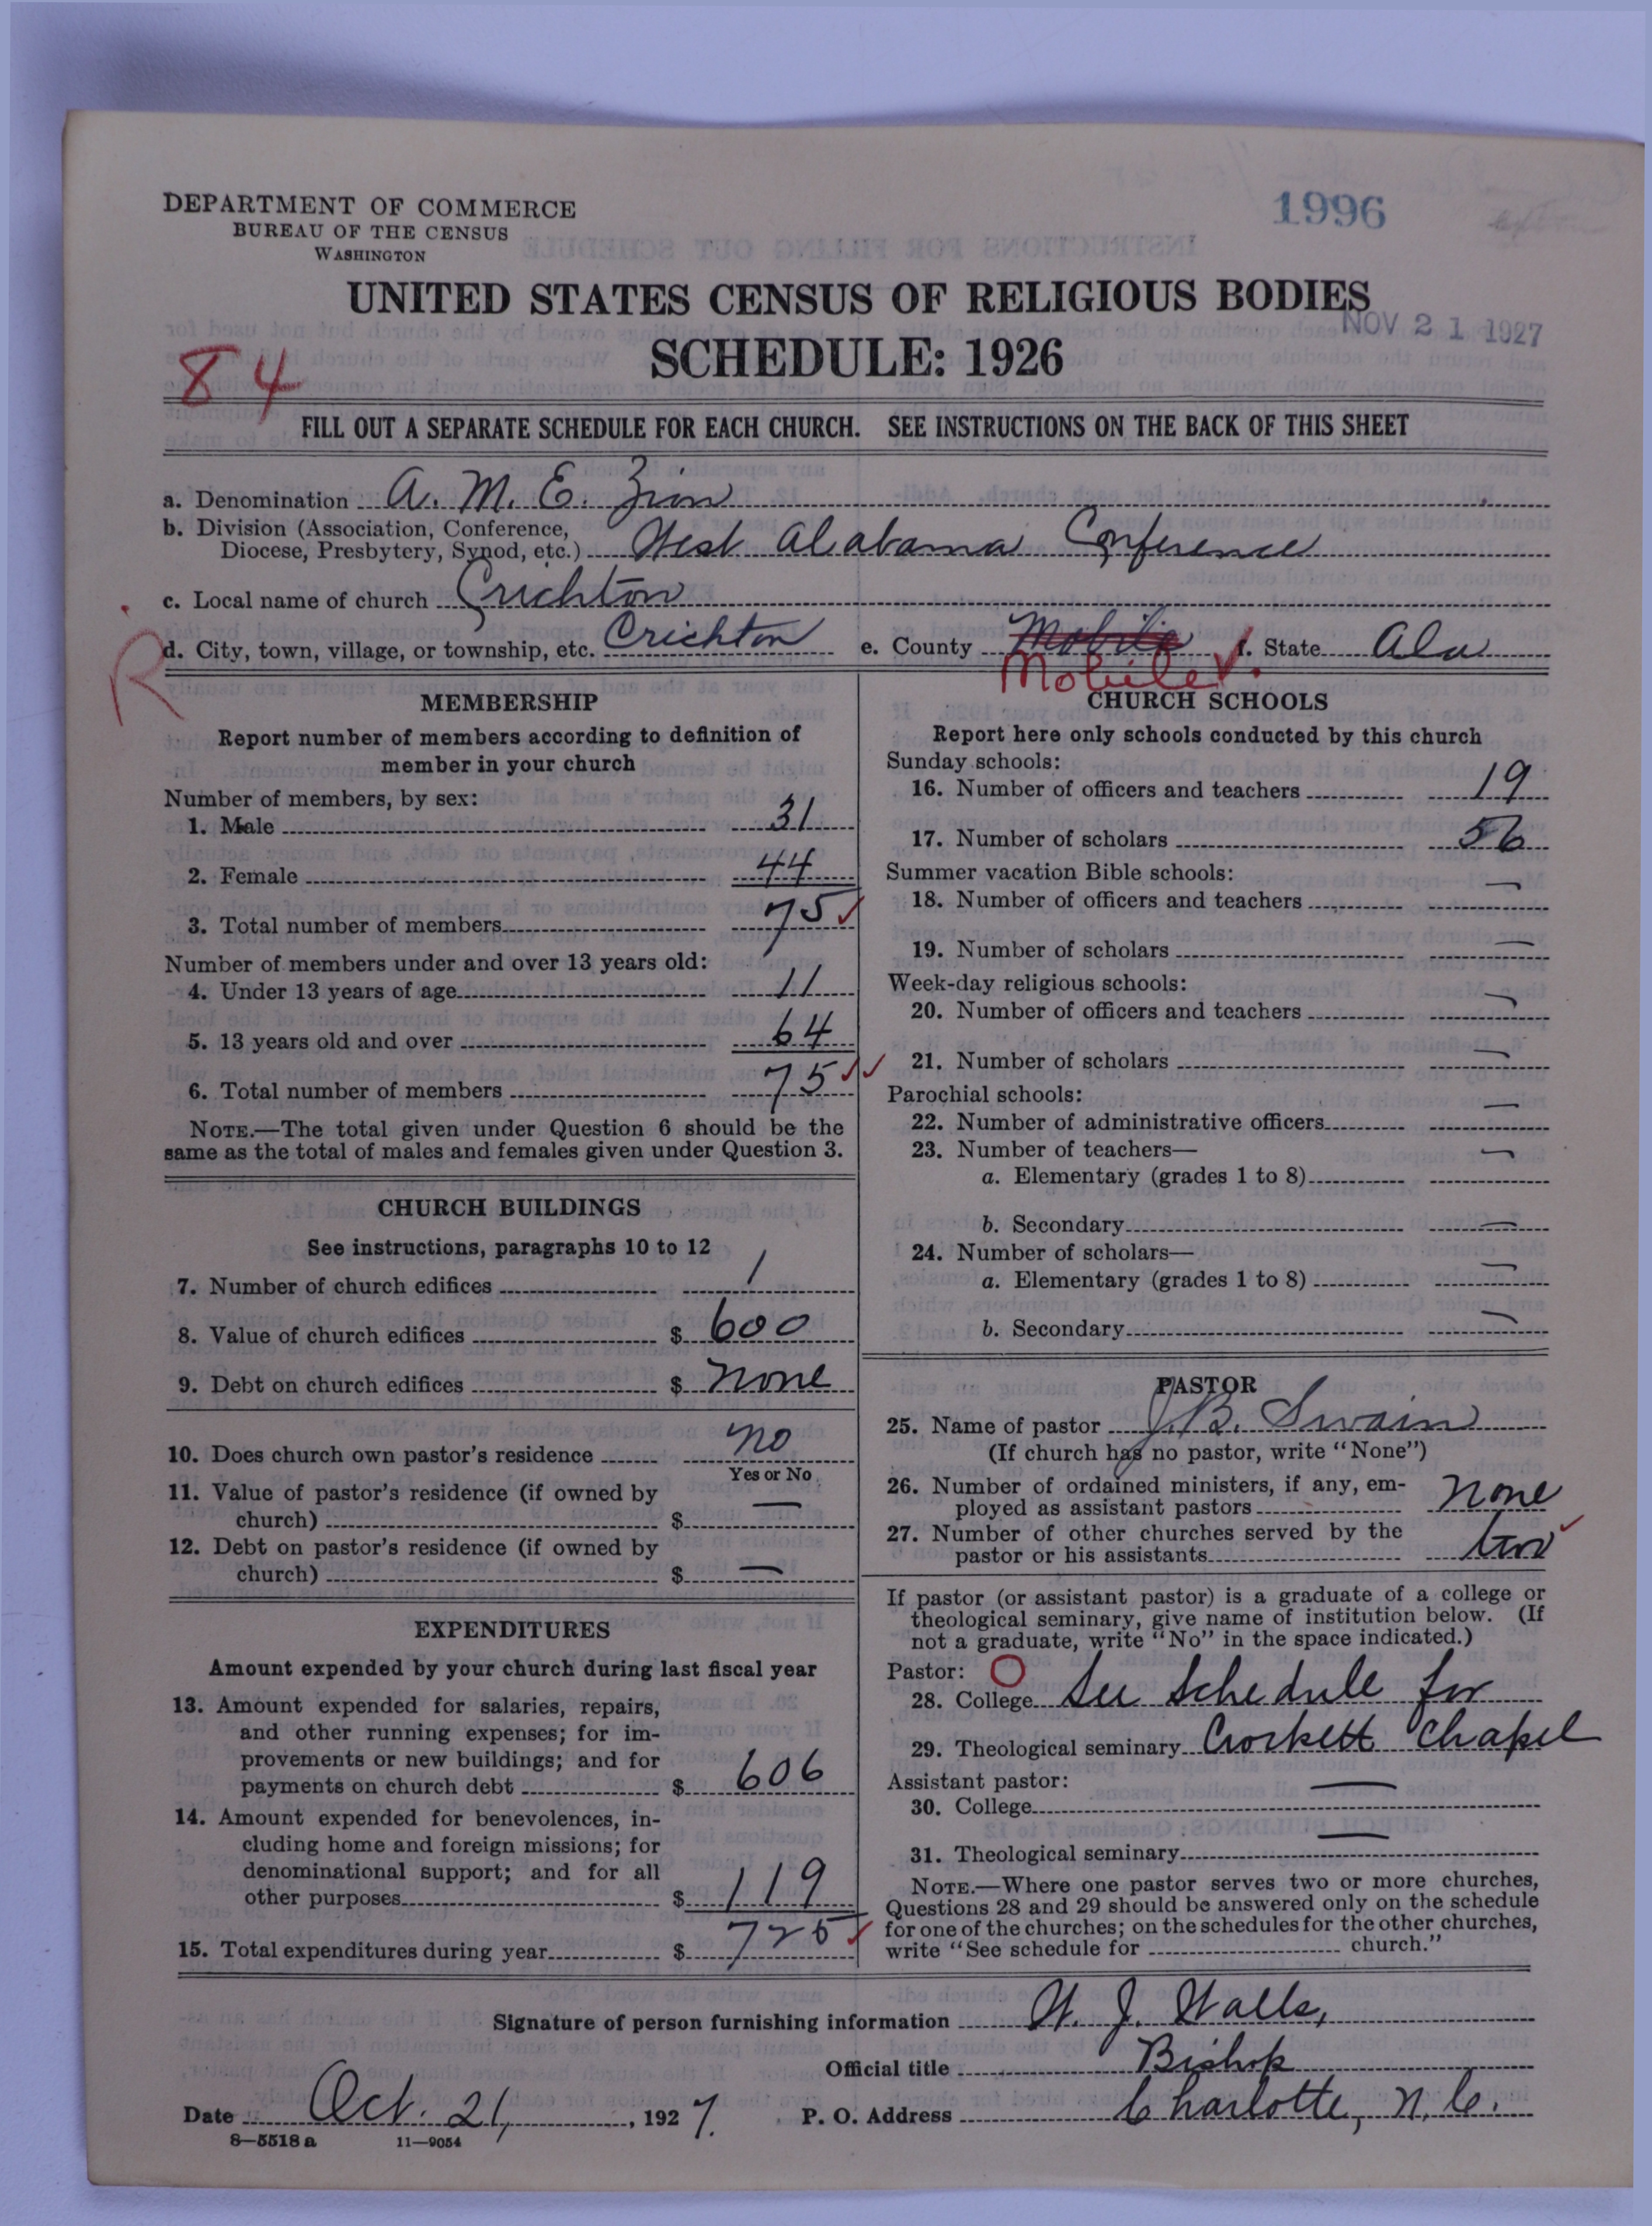 DEPARTMENT OF COMMERCE
BUREAU OF THE CENSUS
WASHINGTON
1996
UNITED STATES CENSUS OF RELIGIOUS BODIES
NOV 21 1927
SCHEDULE: 1926
84
FILL OUT A SEPARATE SCHEDULE FOR EACH CHURCH. SEE INSTRUCTIONS ON THE BACK OF THIS SHEET
a. Denomination A. M. E. Zion
b. Division (Association, Conference,
Diocese, Presbytery, Synod, etc.) West Alabama Conference
c. Local name of church Crichton
d. City, town, village, or township, etc. Crichton e. County Mobile f. State Ala
R
Mobile
MEMBERSHIP
Report number of members according to definition of
member in your church
Number of members, by sex:
1. Male 31
2. Female 44
3. Total number of members 75
Number of members under and over 13 years old:
4. Under 13 years of age 11
5. 13 years old and over 64
6. Total number of members 75
NOTE.—The total given under Question 6 should be the
same as the total of males and females given under Question 3.
CHURCH BUILDINGS
See instructions, paragraphs 10 to 12
7. Number of church edifices 1
8. Value of church edifices $ 600
9. Debt on church edifices $ None
10. Does church own pastor's residence no
Yes or No
11. Value of pastor's residence (if owned by
church) $ —
12. Debt on pastor's residence (if owned by
church) $ —
EXPENDITURES
Amount expended by your church during last fiscal year
13. Amount expended for salaries, repairs,
and other running expenses; for im-
provements or new buildings; and for
payments on church debt $ 606
14. Amount expended for benevolences, in-
cluding home and foreign missions; for
denominational support; and for all
other purposes $ 119
15. Total expenditures during year $ 725
CHURCH SCHOOLS
Report here only schools conducted by this church
Sunday schools:
16. Number of officers and teachers 19
17. Number of scholars 56
Summer vacation Bible schools:
18. Number of officers and teachers —
19. Number of scholars —
Week-day religious schools:
20. Number of officers and teachers —
21. Number of scholars —
Parochial schools:
22. Number of administrative officers —
23. Number of teachers—
a. Elementary (grades 1 to 8) —
b. Secondary —
24. Number of scholars—
a. Elementary (grades 1 to 8) —
b. Secondary —
PASTOR
25. Name of pastor J. B. Swain
(If church has no pastor, write "None")
26. Number of ordained ministers, if any, em-
ployed as assistant pastors None
27. Number of other churches served by the
pastor or his assistants two
If pastor (or assistant pastor) is a graduate of a college or
theological seminary, give name of institution below. (If
not a graduate, write "No" in the space indicated.)
Pastor: O
28. College See Schedule for
29. Theological seminary Crockett Chapel
Assistant pastor:
30. College —
31. Theological seminary —
NOTE.—Where one pastor serves two or more churches,
Questions 28 and 29 should be answered only on the schedule
for one of the churches; on the schedules for the other churches,
write "See schedule for church."
Signature of person furnishing information W. J. Walls,
Official title Bishop
Date Oct. 21, 1927. P. O. Address Charlotte, N. C.
8—5518 a 11—9054